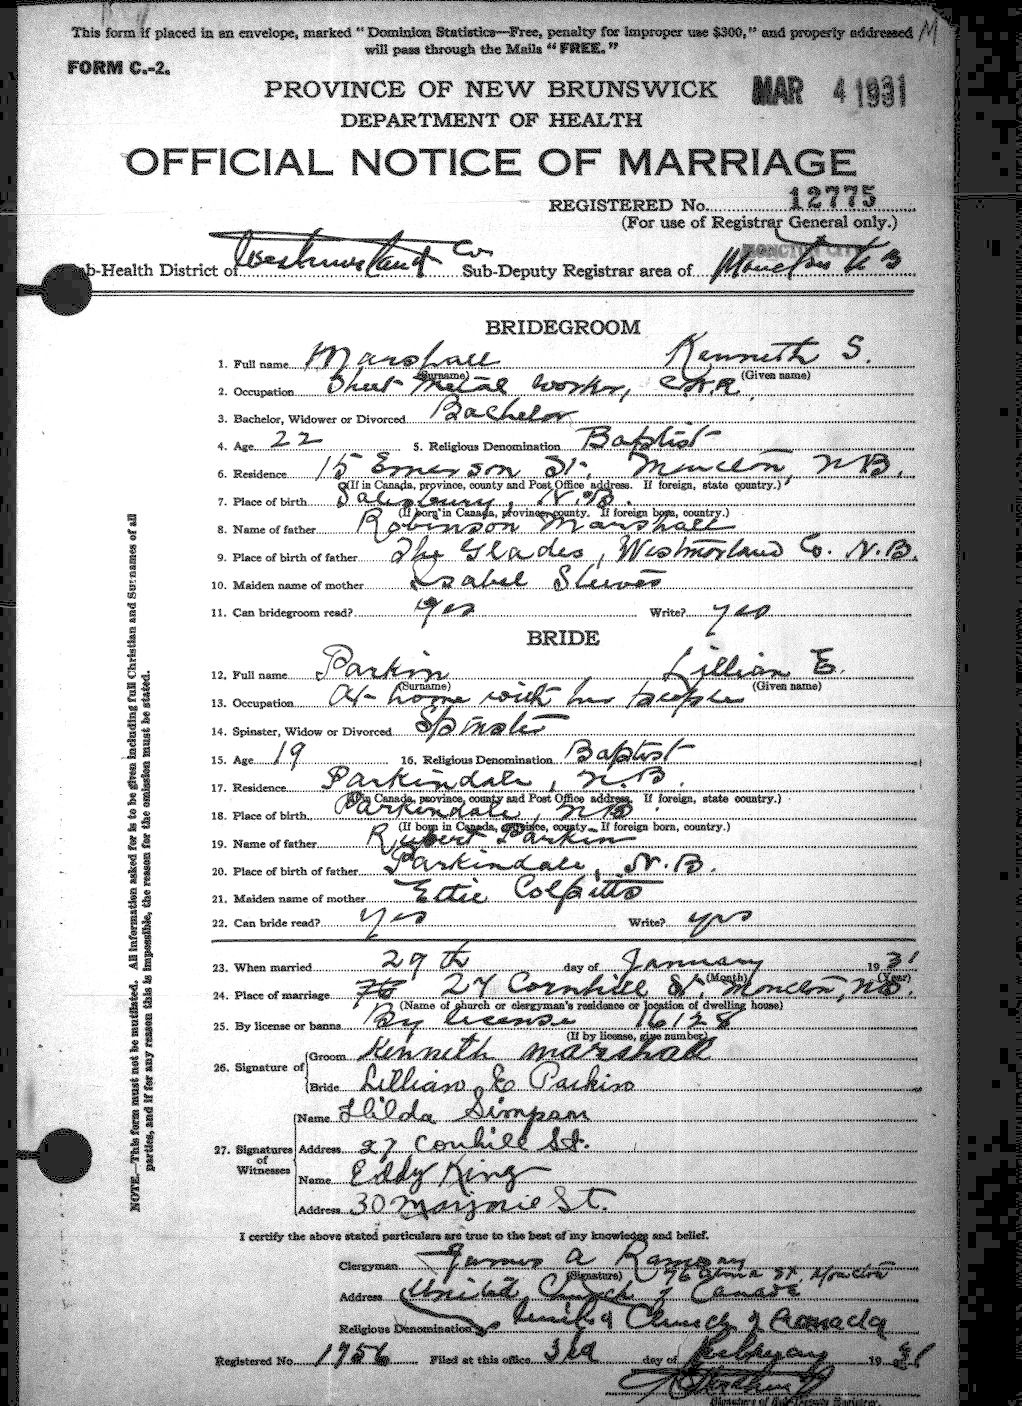 This form if placed in an envelope, marked "Dominion Statistics—Free, penalty for improper use $300," and properly addressed M
will pass through the Mails "FREE."
FORM C.-2.
PROVINCE OF NEW BRUNSWICK MAR 4 1931
DEPARTMENT OF HEALTH
OFFICIAL NOTICE OF MARRIAGE
REGISTERED No. 12775
(For use of Registrar General only.)
MONCTON CITY
b-Health District of Westmorland Co. Sub-Deputy Registrar area of Moncton N B
BRIDEGROOM
1. Full name Marshall Kenneth S.
(Surname) (Given name)
2. Occupation Sheet Metal Worker, C.N.R.
3. Bachelor, Widower or Divorced Bachelor
4. Age 22 5. Religious Denomination Baptist
6. Residence 15 Emerson St. Moncton, N.B.
(If in Canada, province, county and Post Office address. If foreign, state country.)
7. Place of birth Salisbury, N.B.
(If born in Canada, province, county. If foreign born, country.)
8. Name of father Robinson Marshall
9. Place of birth of father The Glades, Westmorland Co. N.B.
10. Maiden name of mother Isabel Steeves
11. Can bridegroom read? yes Write? yes
BRIDE
12. Full name Parkin Lillian E.
(Surname) (Given name)
13. Occupation At home with her people
14. Spinster, Widow or Divorced Spinster
15. Age 19 16. Religious Denomination Baptist
17. Residence Parkindale, N.B.
(If in Canada, province, county and Post Office address. If foreign, state country.)
18. Place of birth Parkindale, N.B.
(If born in Canada, province, county. If foreign born, country.)
19. Name of father Rupert Parkin
20. Place of birth of father Parkindale, N.B.
21. Maiden name of mother Ettie Colpitts
22. Can bride read? yes Write? yes
23. When married 29th day of January 1931
(Month) (Year)
24. Place of marriage 27 Cornhill St. Moncton, N.B.
(Name of church or clergyman's residence or location of dwelling house)
25. By license or banns By license 16128
(If by license, give number)
26. Signature of Groom Kenneth Marshall
Bride Lillian E Parkin
27. Signatures of Witnesses
Name Hilda Simpson
Address 27 Cornhill St.
Name Eddy King
Address 30 Marjorie St.
I certify the above stated particulars are true to the best of my knowledge and belief.
Clergyman James A Ramsay
(Signature) 76 Alma St. Moncton
Address United Church of Canada
Religious Denomination United Church of Canada
Registered No. 1756 Filed at this office 3rd day of February 1931
Signature of Sub-Deputy Registrar.
NOTE.—This form must not be mutilated. All information asked for is to be given including full Christian and Surnames of all
parties, and if for any reason this is impossible, the reason for the omission must be stated.